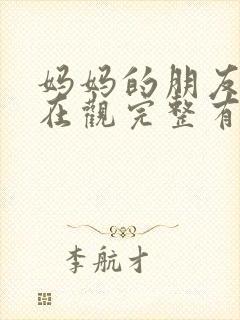 妈妈的朋友
在觀完整有
李航才